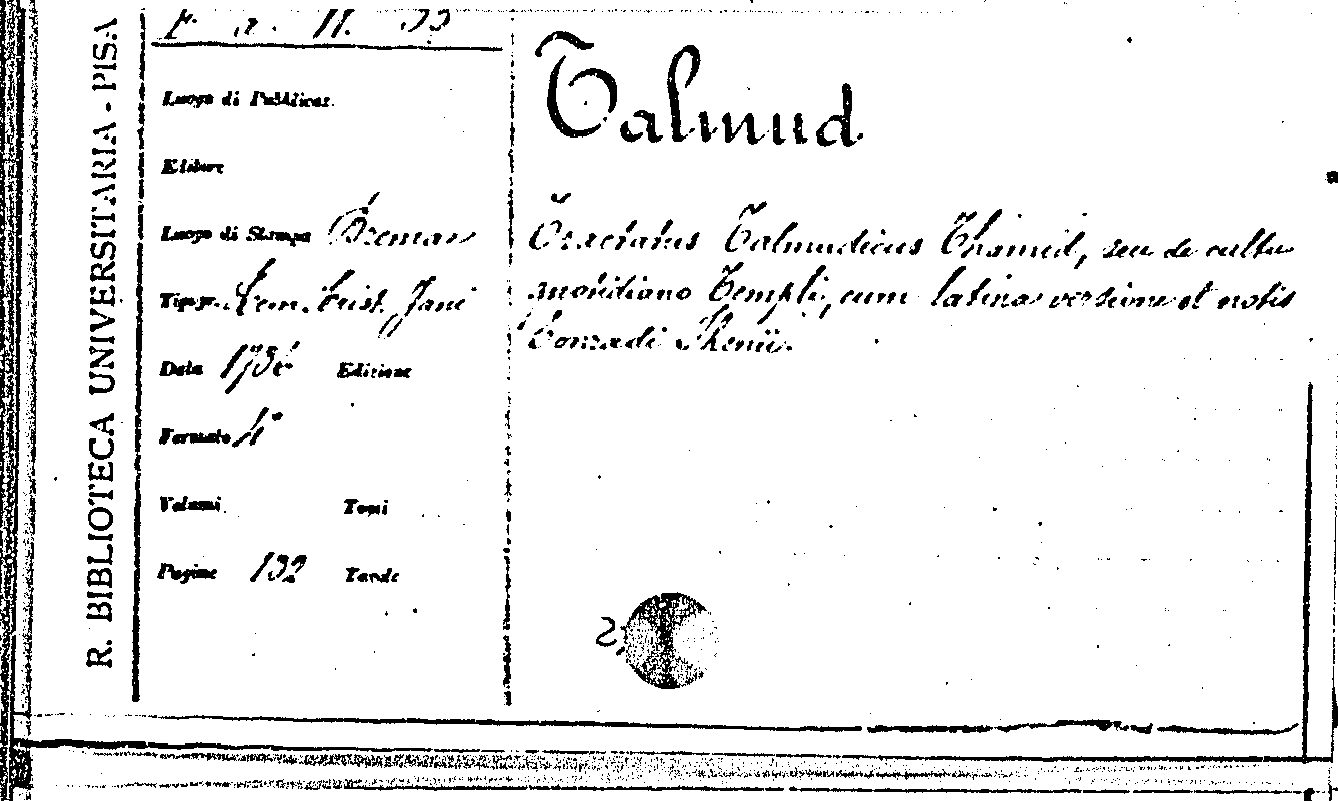 R. BIBLIOTECA UNIVERSITARIA - PISA
Luogo di Pubblicaz.
Editore
Luogo di Stampa Bremae
Tipogr. Crist. Jani
Data 1736 Edizione
Formato 4°
Volumi Tomi
Pagine 132 Tavole
Talmud
Tractatus Talmudicus Thamid, seu de cultu
quotidiano Templi, cum latina versione et notis
Conradi Jkenii.